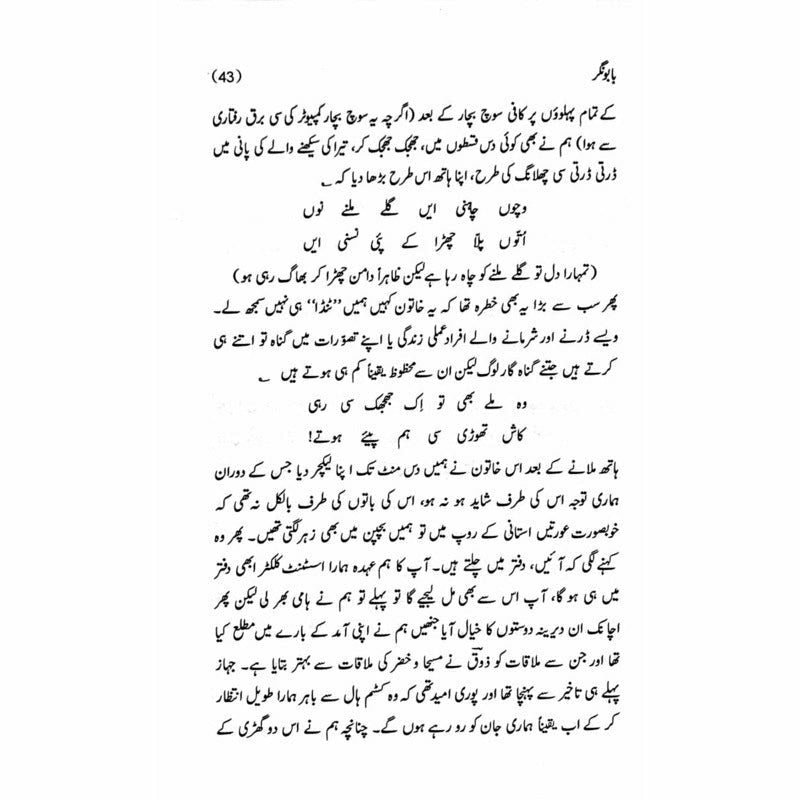 بابونگر (43)
کے تمام پہلوؤں پر کافی سوچ بچار کے بعد (اگرچہ یہ سوچ بچار کمپیوٹر کی سی برق رفتاری
سے ہوا) ہم نے بھی کوئی دس قسطوں میں، جھجک جھجک کر، تیرا کی سیکھنے والے کی پانی میں
ڈرتی ڈرتی سی چھلانگ کی طرح، اپنا ہاتھ اس طرح بڑھا دیا کہ ؎
وچوں چاہنی ایں گلے ملنے نوں
اُتوں پلّا چھڑا کے پئی نسنی ایں
(تمہارا دل تو گلے ملنے کو چاہ رہا ہے لیکن ظاہراً دامن چھڑا کر بھاگ رہی ہو)
پھر سب سے بڑا یہ بھی خطرہ تھا کہ یہ خاتون کہیں ہمیں ’’ٹنڈا‘‘ ہی نہیں سمجھ لے۔
ویسے ڈرنے اور شرمانے والے افراد عملی زندگی یا اپنے تصوّرات میں گناہ تو اتنے ہی
کرتے ہیں جتنے گناہ گار لوگ لیکن ان سے محظوظ یقیناً کم ہی ہوتے ہیں ؎
وہ ملے بھی تو اِک جھجھک سی رہی
کاش تھوڑی سی ہم پیئے ہوتے!
ہاتھ ملانے کے بعد اس خاتون نے ہمیں دس منٹ تک اپنا لیکچر دیا جس کے دوران
ہماری توجہ اس کی طرف شاید ہو نہ ہو، اس کی باتوں کی طرف بالکل نہ تھی کہ
خوبصورت عورتیں استانی کے روپ میں تو ہمیں بچپن میں بھی زہر لگتی تھیں۔ پھر وہ
کہنے لگی کہ آئیں، دفتر میں چلتے ہیں۔ آپ کا ہم عہدہ ہمارا اسسٹنٹ کلکٹر ابھی دفتر
میں ہی ہو گا، آپ اس سے بھی مل لیجیے گا تو پہلے تو ہم نے ہامی بھر لی لیکن پھر
اچانک ان دیرینہ دوستوں کا خیال آیا جنھیں ہم نے اپنی آمد کے بارے میں مطلع کیا
تھا اور جن سے ملاقات کو ذوقؔ نے مسیحا و خضر کی ملاقات سے بہتر بتایا ہے۔ جہاز
پہلے ہی تاخیر سے پہنچا تھا اور پوری امید تھی کہ وہ کسٹم ہال سے باہر ہمارا طویل انتظار
کر کے اب یقیناً ہماری جان کو رو رہے ہوں گے۔ چنانچہ ہم نے اس دو گھڑی کے